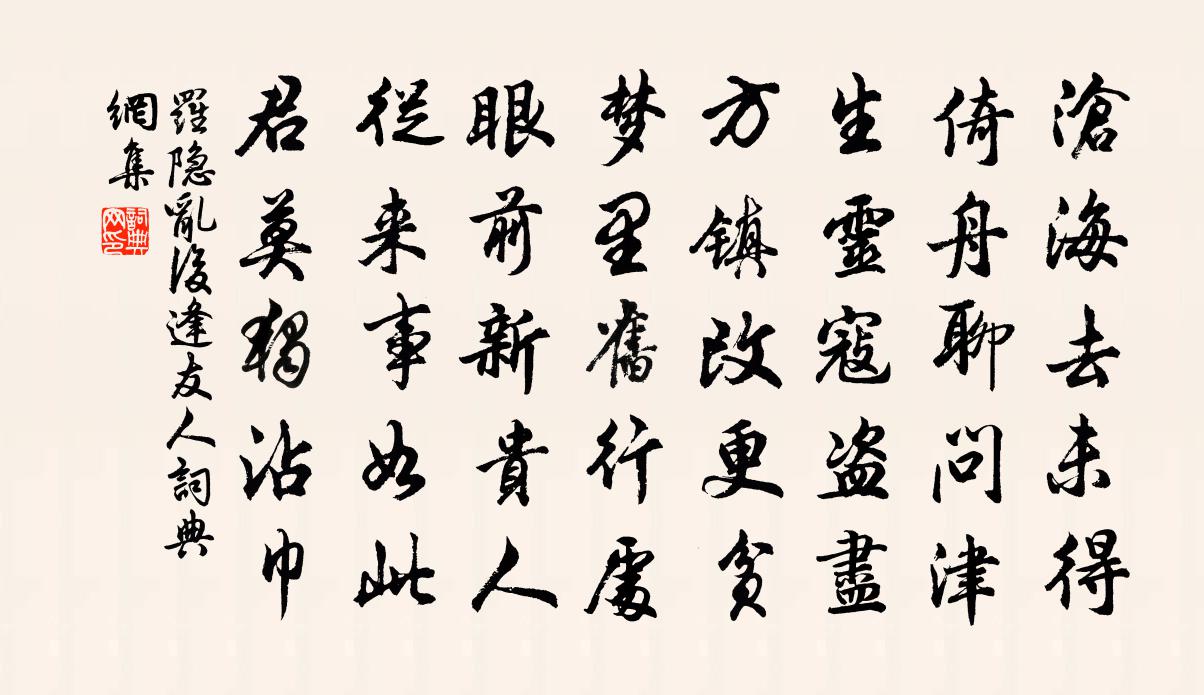 滄海去未得
倚舟聊問津
生靈寇盗盡
方鎮改更貧
梦里舊行處
眼前新貴人
從来事如此
君莫獨沾巾
羅隐亂後逢友人詞典
網集
詞典网印